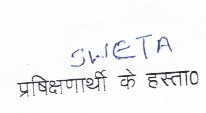 SWETA
प्रषिक्षणार्थी के हस्ता०